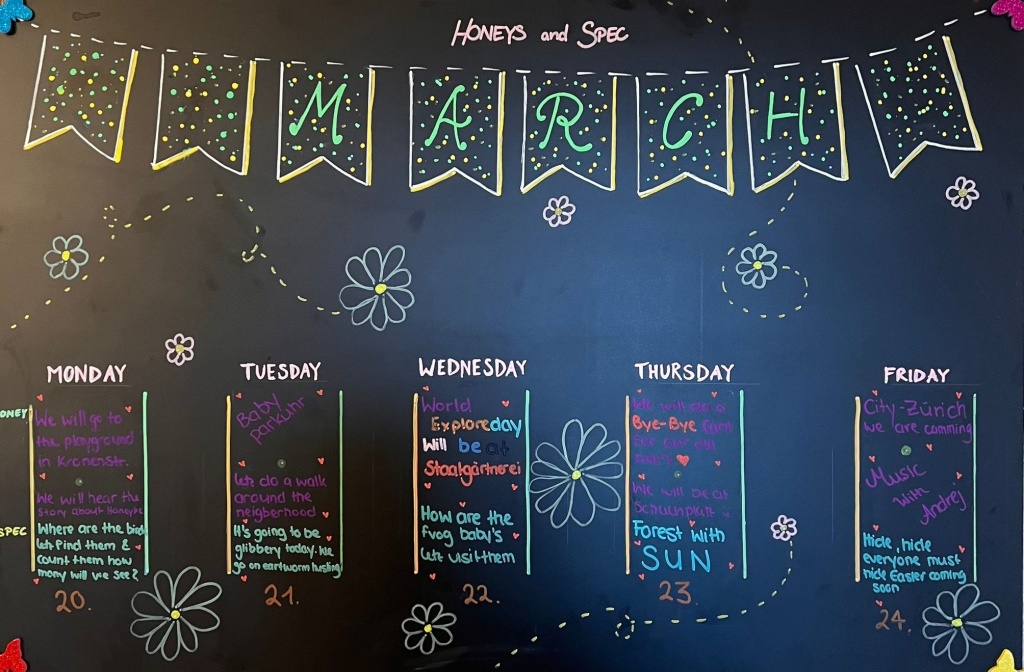 HONEYS and SPEC
MARCH
MONDAY
ONEY
We will go to
the playground
in Kronenstr.
We will hear the
story about Honeype
SPEC
Where are the birds
let's find them &
count them how
many will we see?
20.
TUESDAY
Baby
parkuhr
We do a walk
around the
neigberhood
It's going to be
glibbery today. We
go on eartworm husling
21.
WEDNESDAY
World
Exploreday
Will be at
Staalgärtnerei
How are the
frog baby's
let's visit them
22.
THURSDAY
We will do a
Bye-Bye
We will be at
Forest with
SUN
23.
FRIDAY
City-Zürich
we are comming
Music
with
Andrej
Hide, hide
everyone must
hide Easter coming
soon
24.